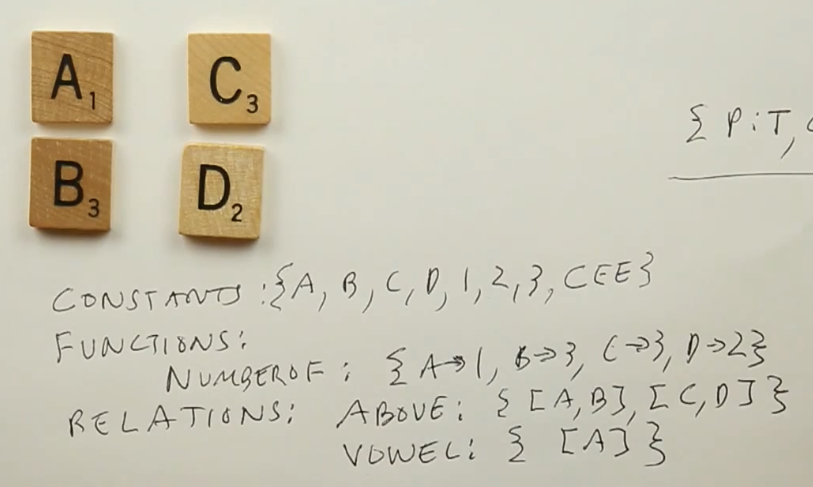 A1 C3
B3 D2
{ P:T,
CONSTANTS:{A, B, C, D, 1, 2, 3, CEE}
FUNCTIONS:
NUMBEROF: {A→1, B→3, C→3, D→2}
RELATIONS: ABOVE: {[A,B],[C,D]}
VOWEL: {[A]}